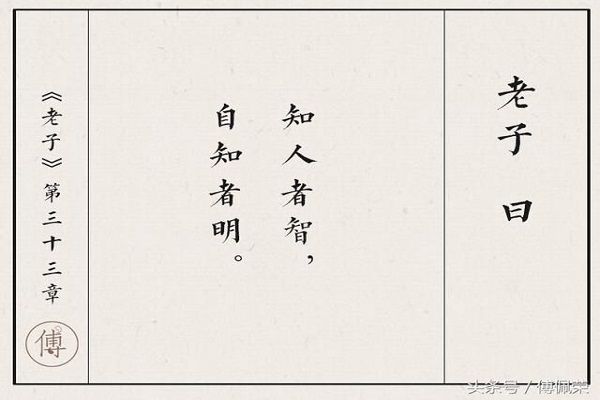 老子 曰
知人者智，
自知者明。
《老子》第三十三章
傅
头条号 / 傅佩荣